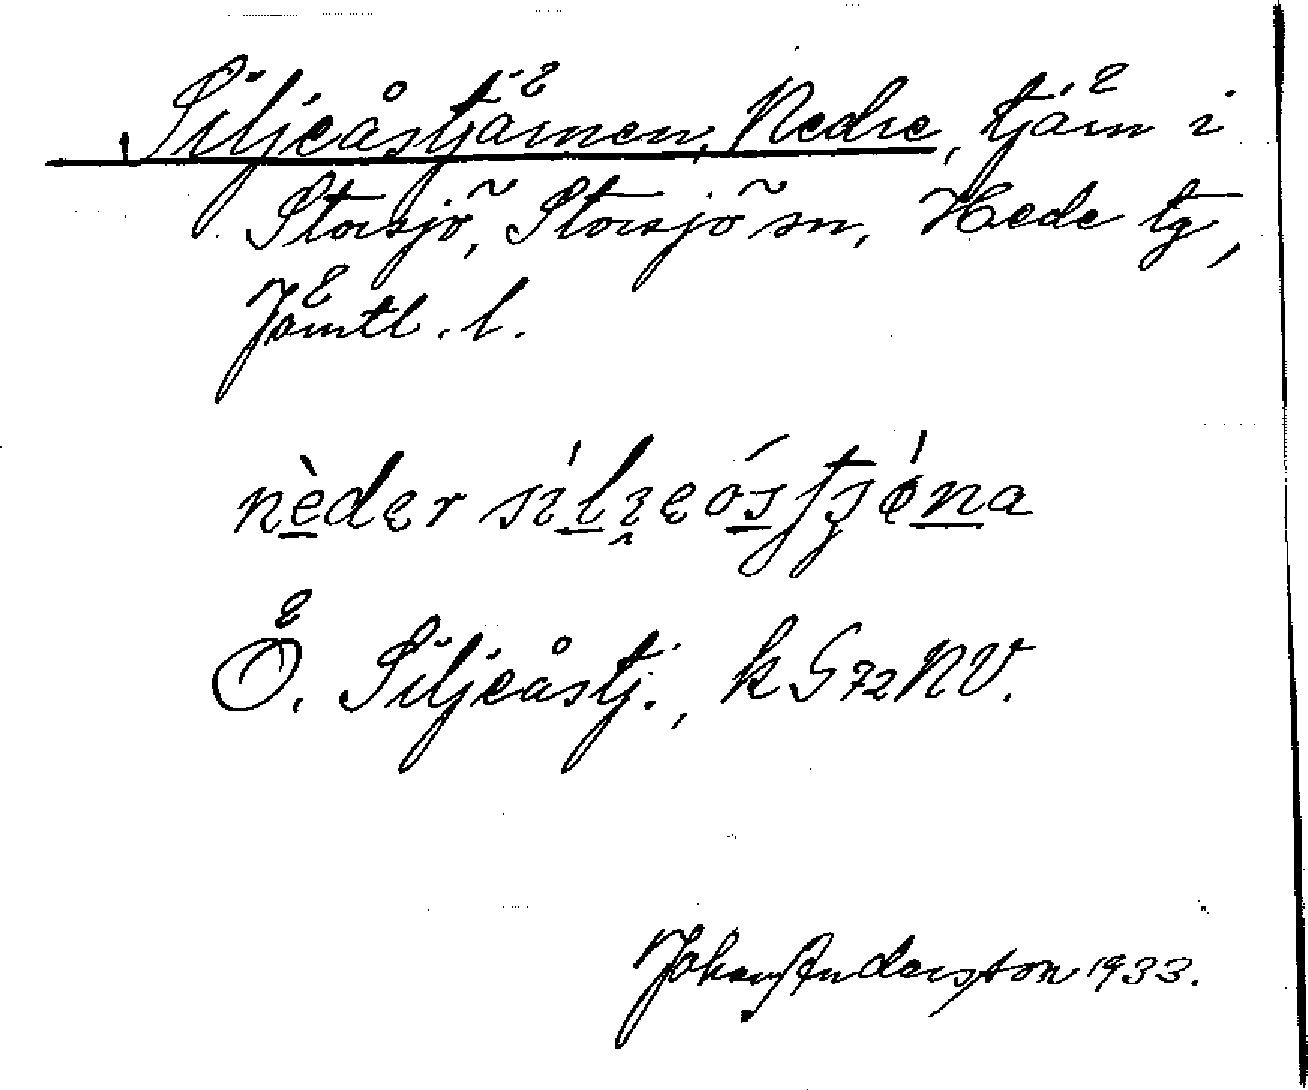 Siljeåstjärnen, Nedre, tjärn i
Storsjö, Storsjö sn, Hede tg,
Jämtl. l.
nèdęr sil̯ięóstjóna
Ö. Siljeåstj., k G 72 NV.
Johan Andersson 1933.